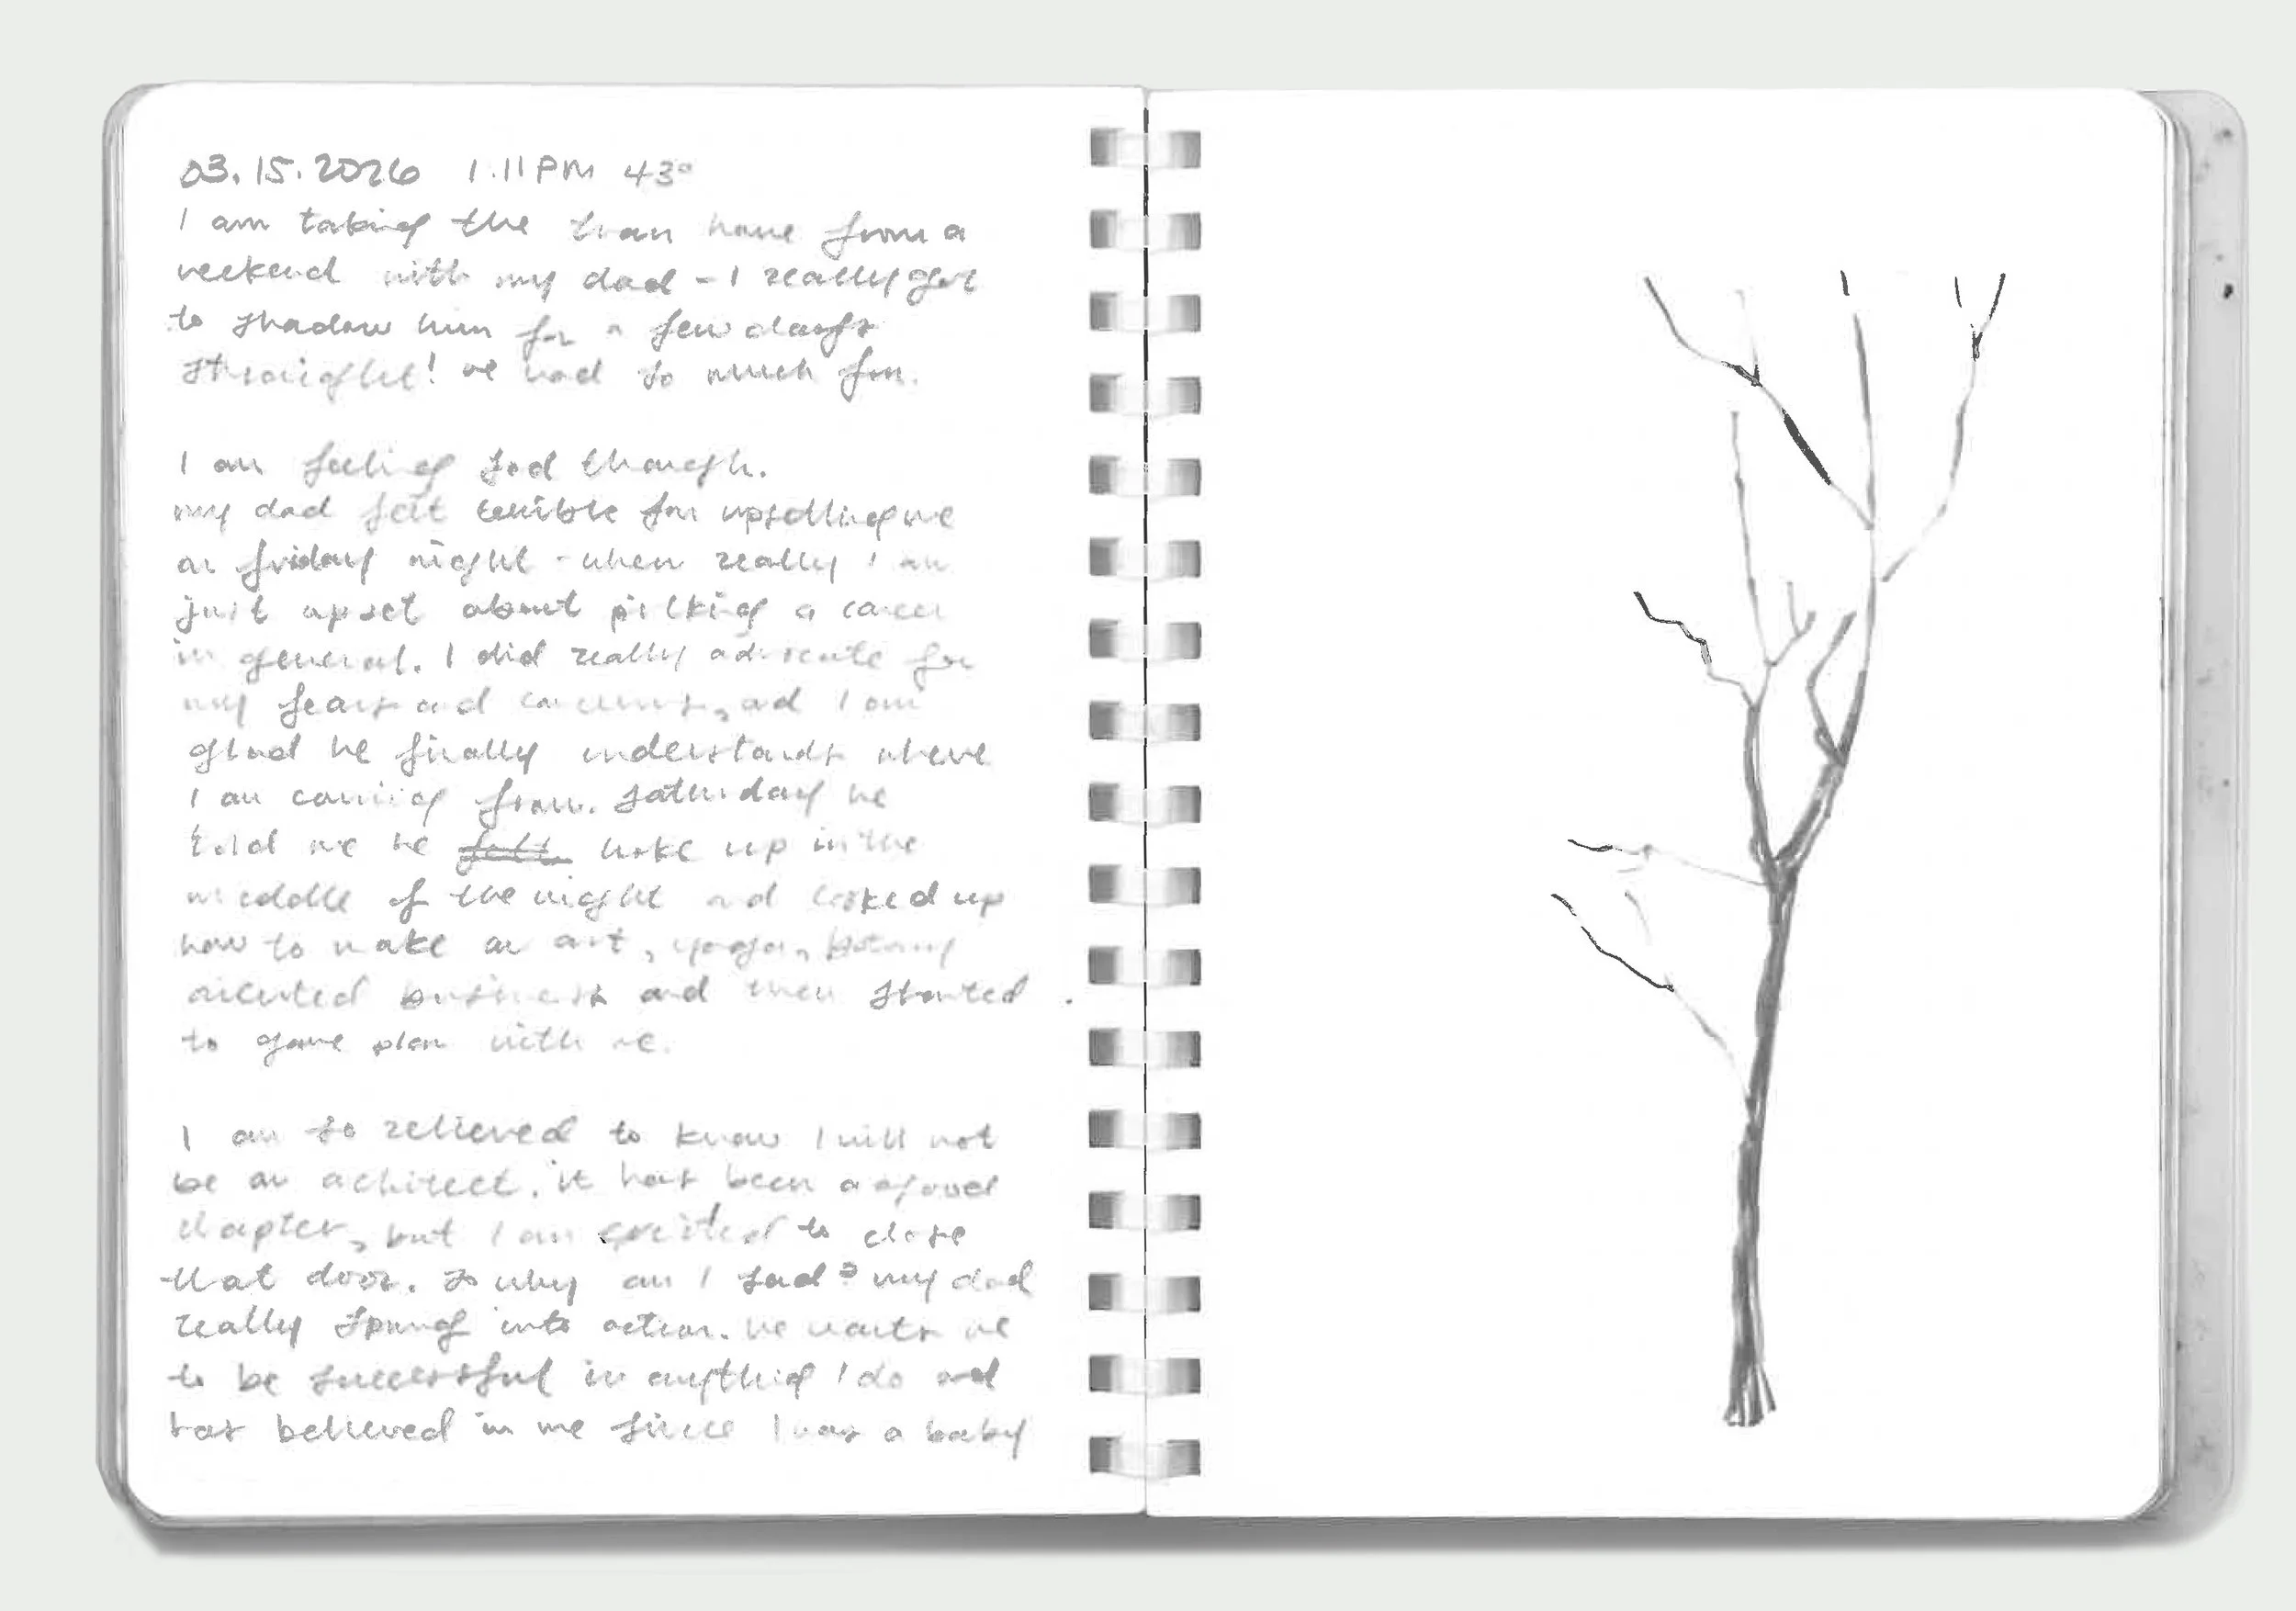 03.15.2026 1:11PM 43°
I am taking the train home from a
weekend with my dad - I really got
to shadow him for a few days
straight! we had so much fun.
I am feeling sad though.
my dad felt terrible for upsetting me
on friday night - when really I am
just upset about picking a career
in general. I did really advocate for
my fears and concerns, and I am
glad he finally understands where
I am coming from. Saturday he
told me he felt woke up in the
middle of the night and looked up
how to make an art, yoga, botany
oriented business and then started
to game plan with me.
I am so relieved to know I will not
be an achitect. it has been a good
chapter, but I am excited to close
that door. so why am I sad? my dad
really sprung into action. he wants me
to be successful in anything I do and
has believed in me since I was a baby